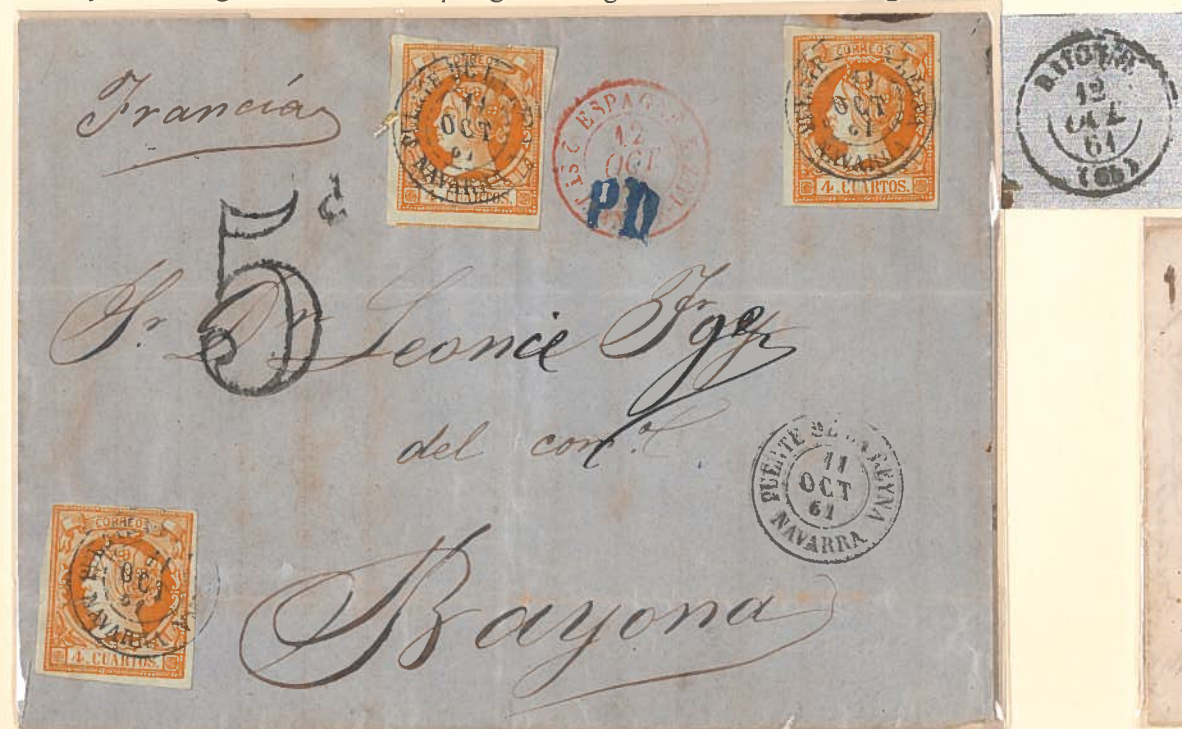 Francia
CORREOS
11
OCT
61
NAVARRA
4 CUARTOS.
ESPAGNE
12
OCT.
PD
CORREOS
11
OCT
61
NAVARRA
4 CUARTOS.
12
61
5 d
Sr. Dn. Leonce
del com.o
PUENTE DE LA REYNA
11
OCT
61
NAVARRA
CORREOS
11
OCT
61
NAVARRA
4 CUARTOS.
Bayona